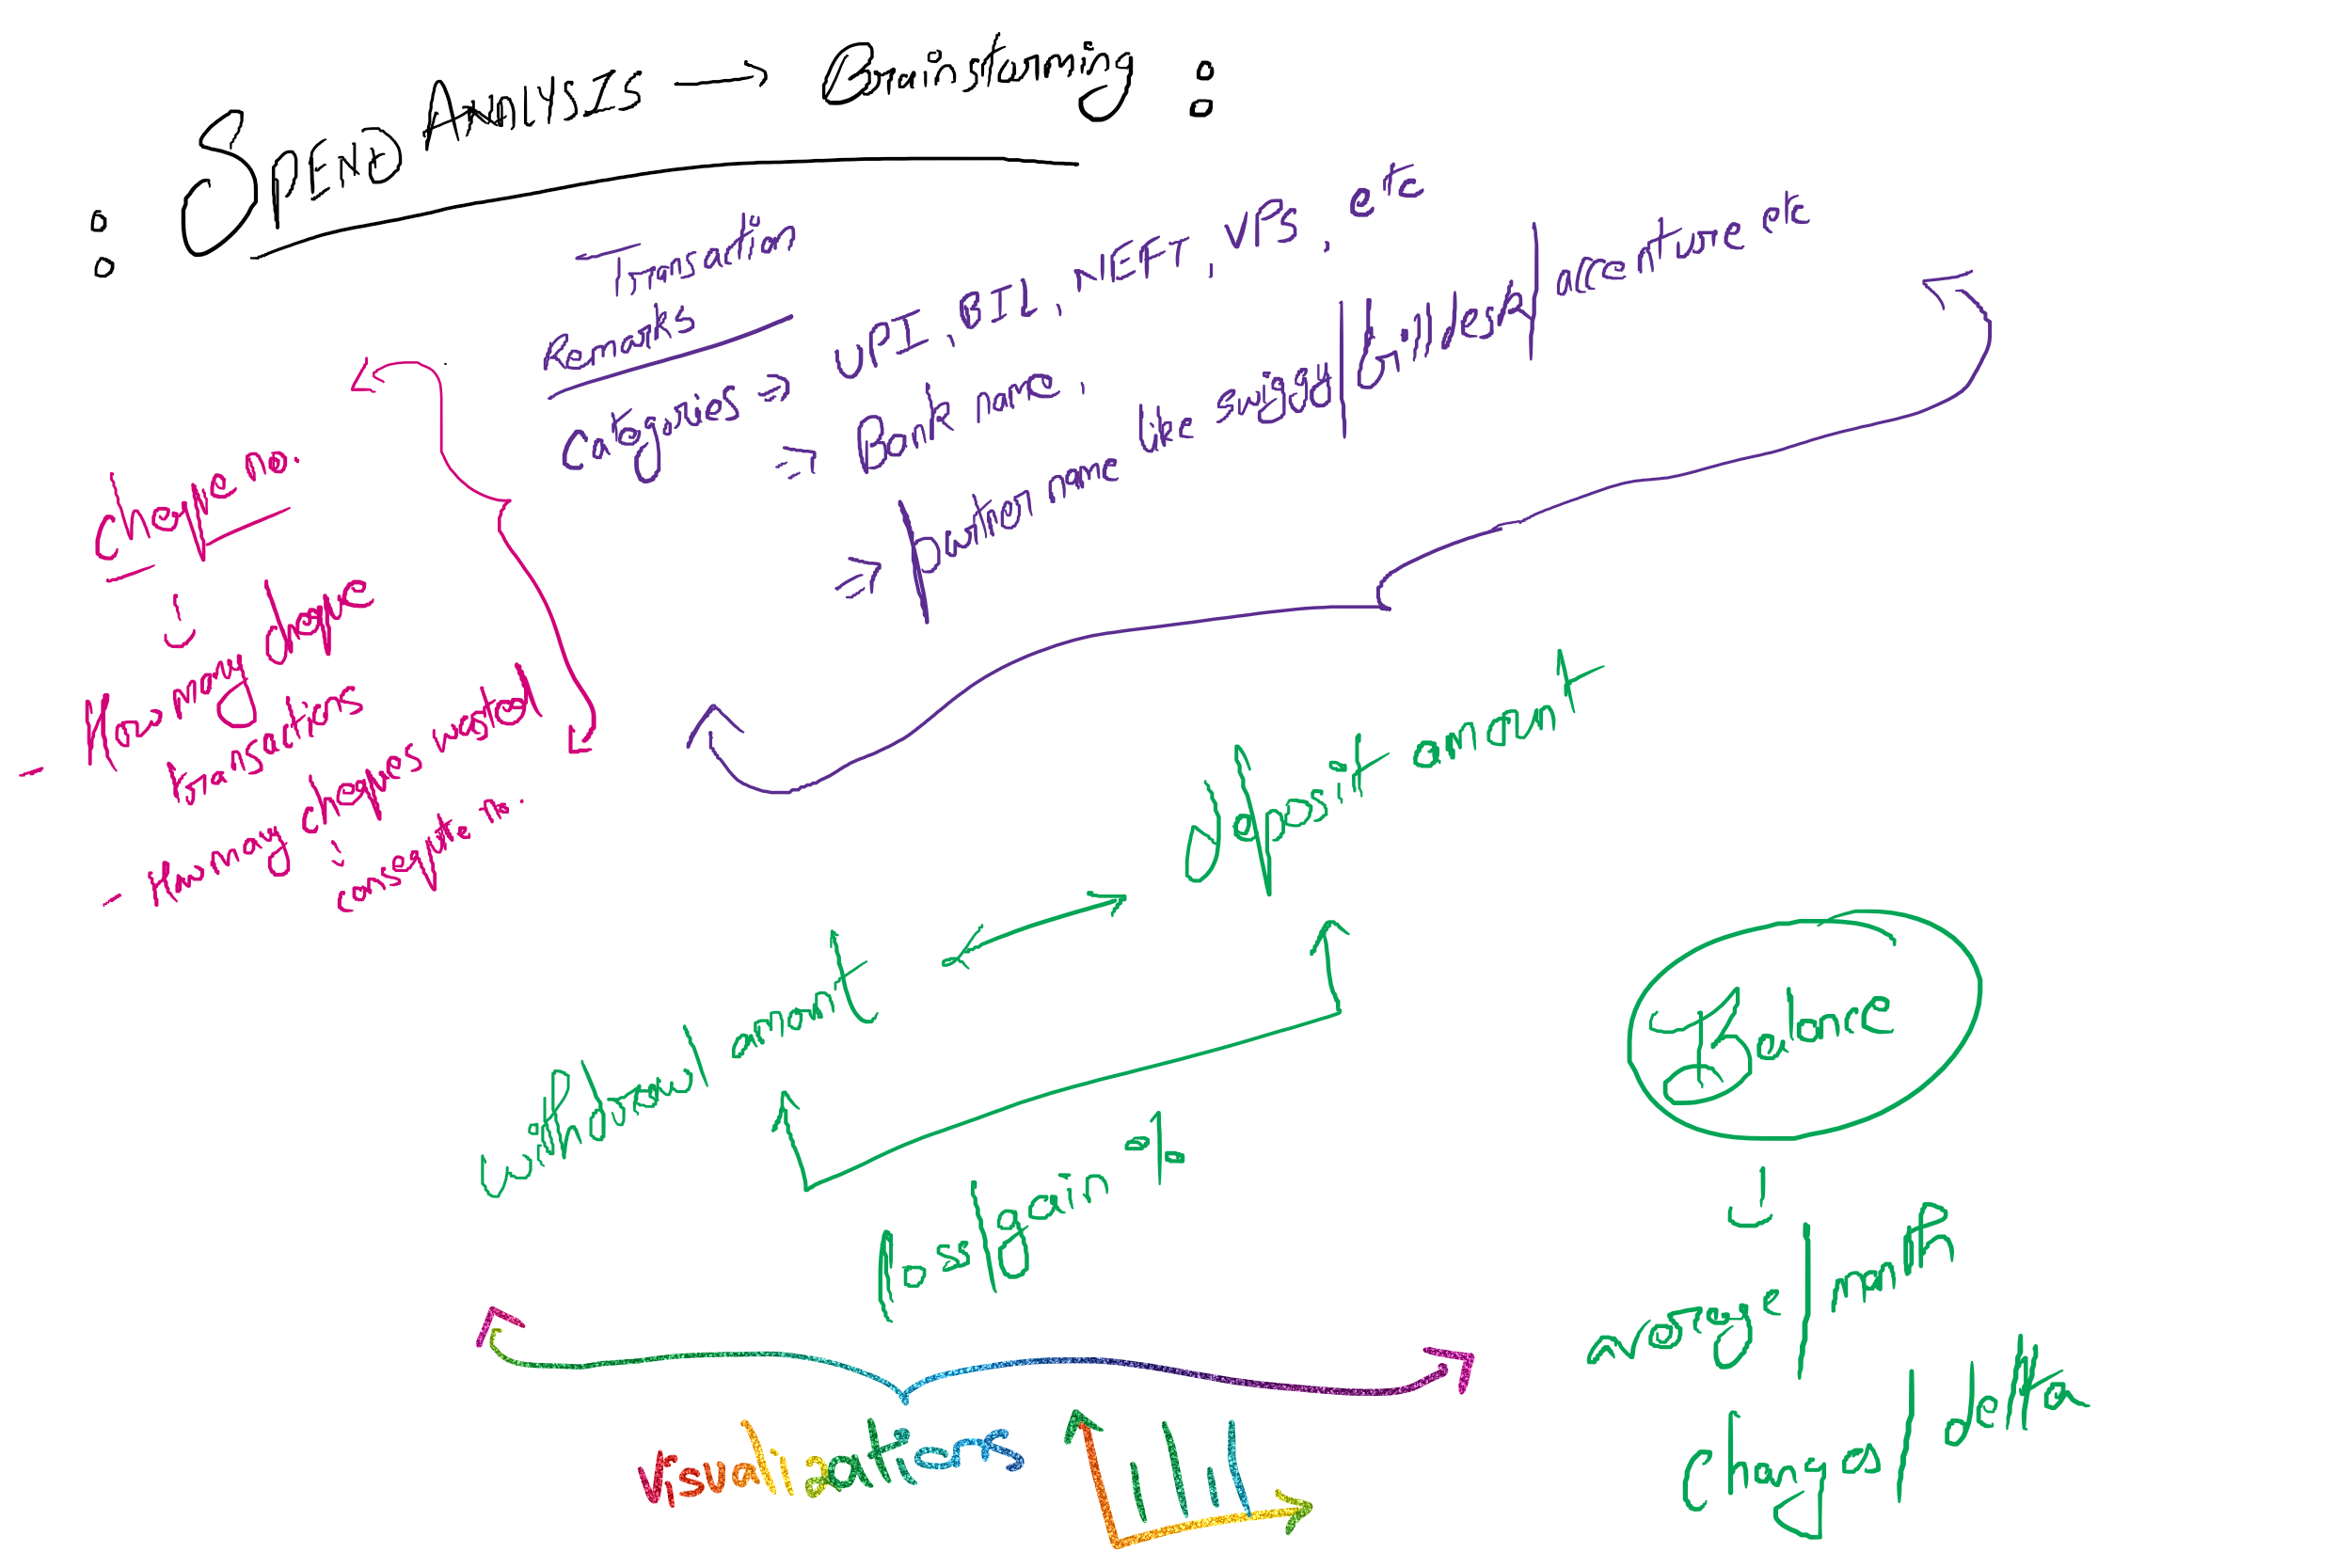 : SPEND ANALYSIS → Brainstorming :
Transaction
Remarks
Categories ⇒ UPI, BIL, NEFT, VPS, etc
⇒ Bank name,
⇒ partner name like swiggy/billdesk/accenture etc
cheque no.
- How many cheque
transactions
- How many cheques wasted
consequte no.
withdrawl amount ↔ deposit amount
loss/gain %
Balance
average/month
changes/delta
Visualizations